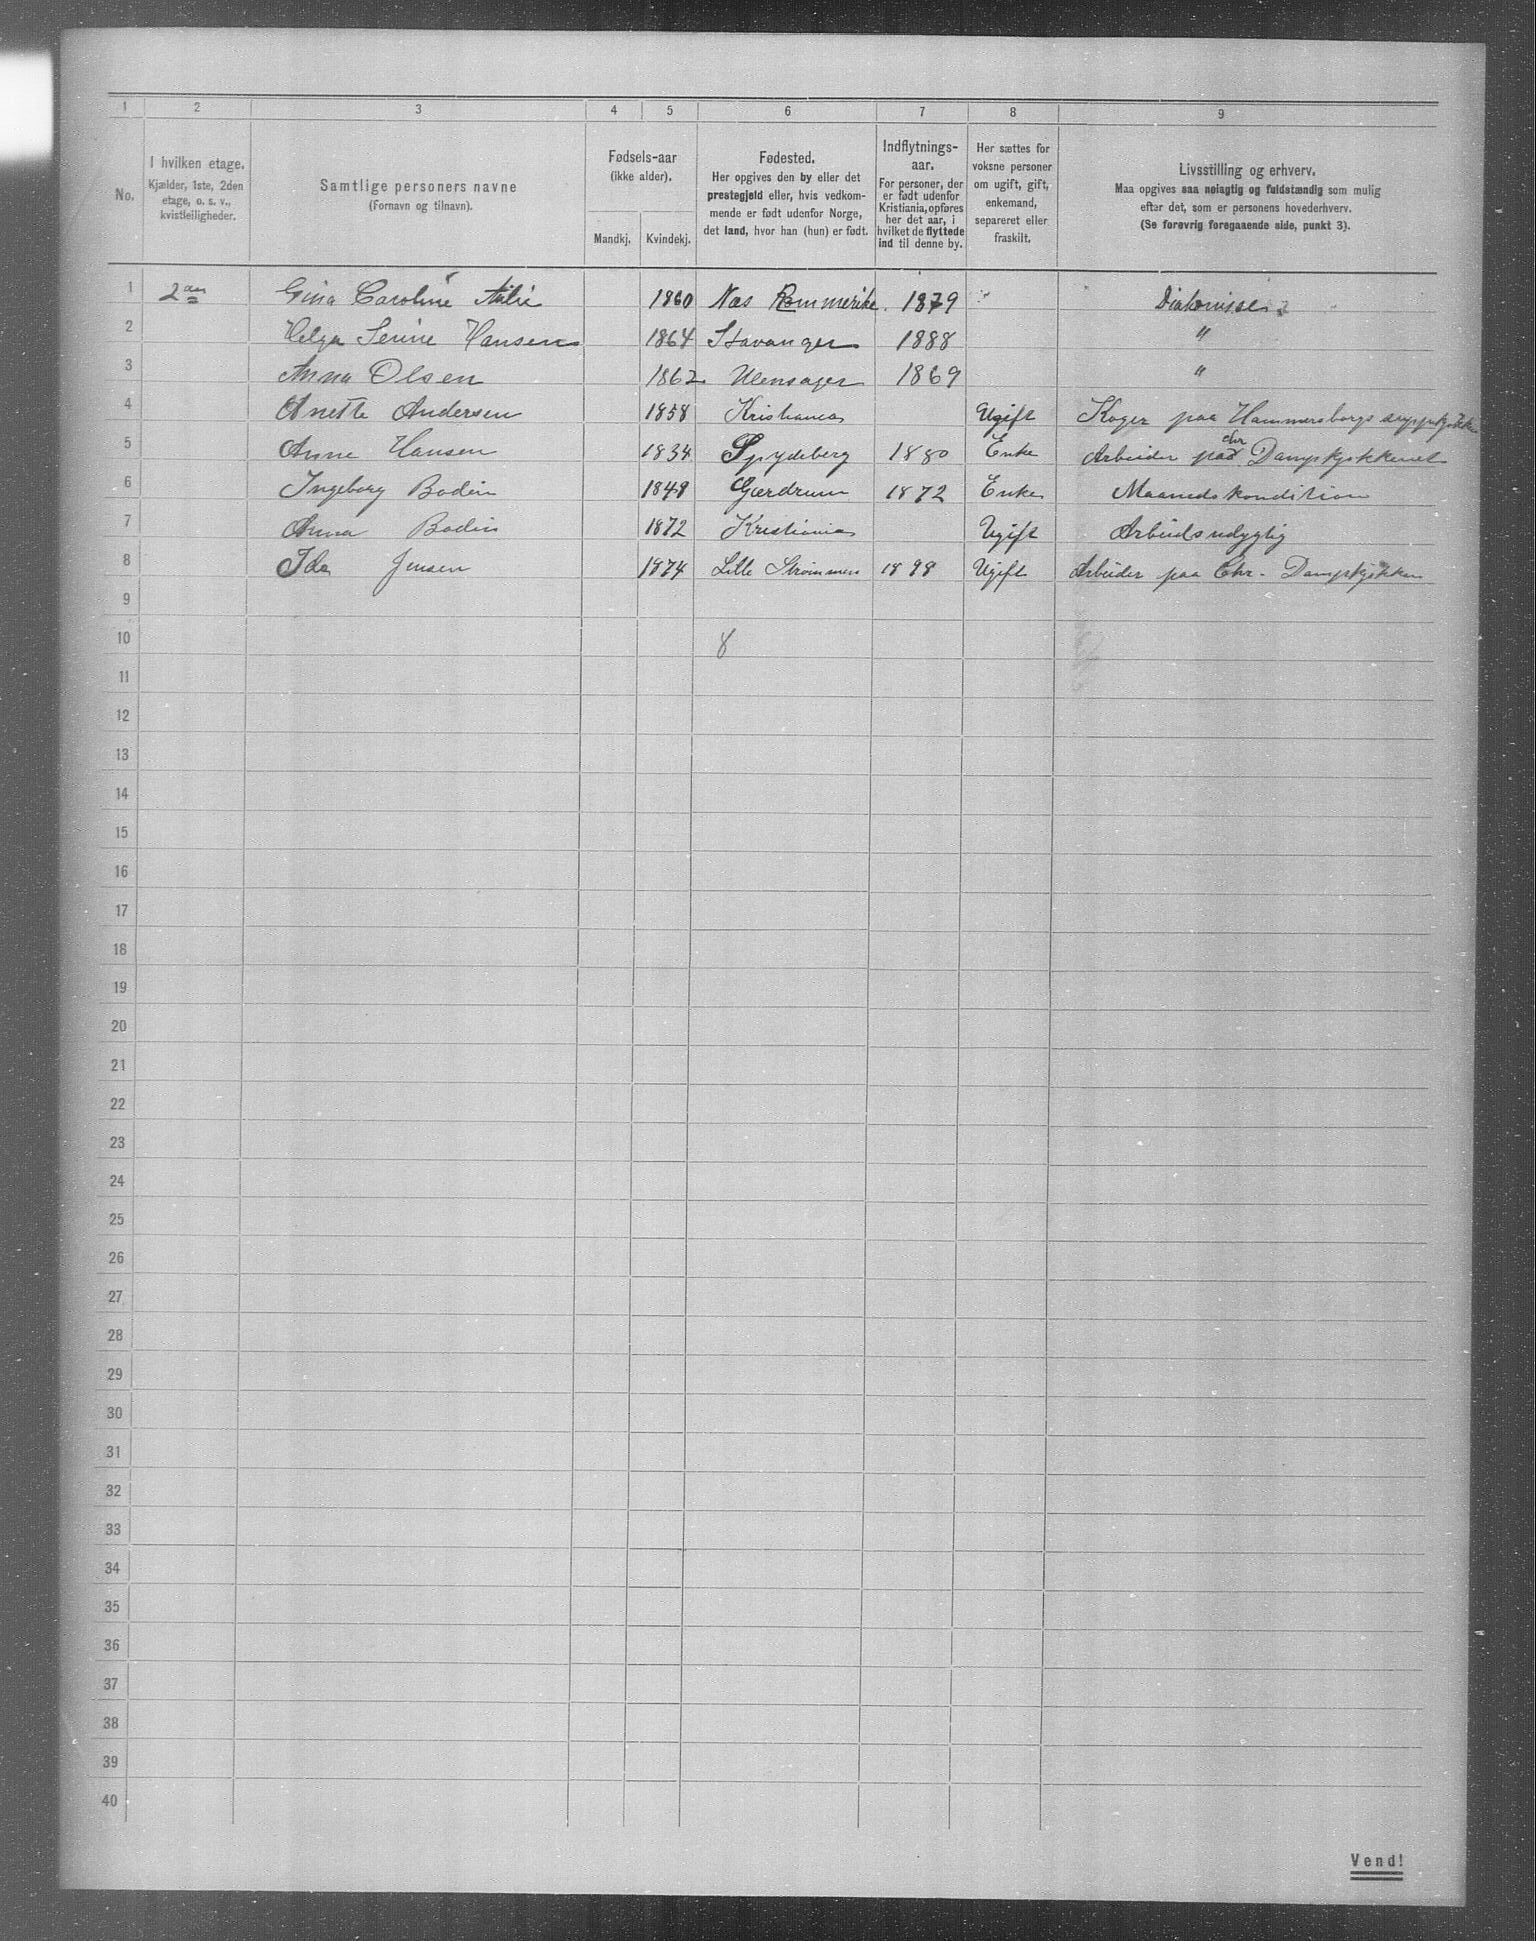 1 2 3 4 5 6 7 8 9
No.
I hvilken etage.
Kjælder, 1ste, 2den
etage, o. s. v.,
kvistleiligheder.
Samtlige personers navne
(Fornavn og tilnavn).
Fødsels-aar
(ikke alder).
Mandkj. Kvindekj.
Fødested.
Her opgives den by eller det
prestegjeld eller, hvis vedkom-
mende er født udenfor Norge,
det land, hvor han (hun) er født.
Indflytnings-
aar.
For personer, der
er født udenfor
Kristiania, opføres
her det aar, i
hvilket de flyttede
ind til denne by.
Her sættes for
voksne personer
om ugift, gift,
enkemand,
separeret eller
fraskilt.
Livsstilling og erhverv.
Maa opgives saa nøiagtig og fuldstændig som mulig
efter det, som er personens hovederhverv.
(Se forøvrig foregaaende side, punkt 3).
1 2 Gina Caroline 1860 Næs Rommerike. 1879 Diakonisse
2 Helga Serine Hansen 1864 Stavanger 1888 "
3 Anna Olsen 1862 Ulensager 1869 "
4 Anette Andersen 1858 Kristiania Ugift Koger paa Hammersborgs
5 Anne Hansen 1834 Spydeberg 1880 Enke Arbeider paa Chr Dampkjøkkenet
6 Ingeborg Bodin 1848 Gjerdrum 1872 Enke Maanedskondition
7 Anna Bodin 1872 Kristiania Ugift Arbeidsudygtig
8 Ida Jensen 1874 Lille Strømmen 1898 Ugift Arbeider paa Chr. Dampkjøkken
9
10 8
11
12
13
14
15
16
17
18
19
20
21
22
23
24
25
26
27
28
29
30
31
32
33
34
35
36
37
38
39
40
Vend!